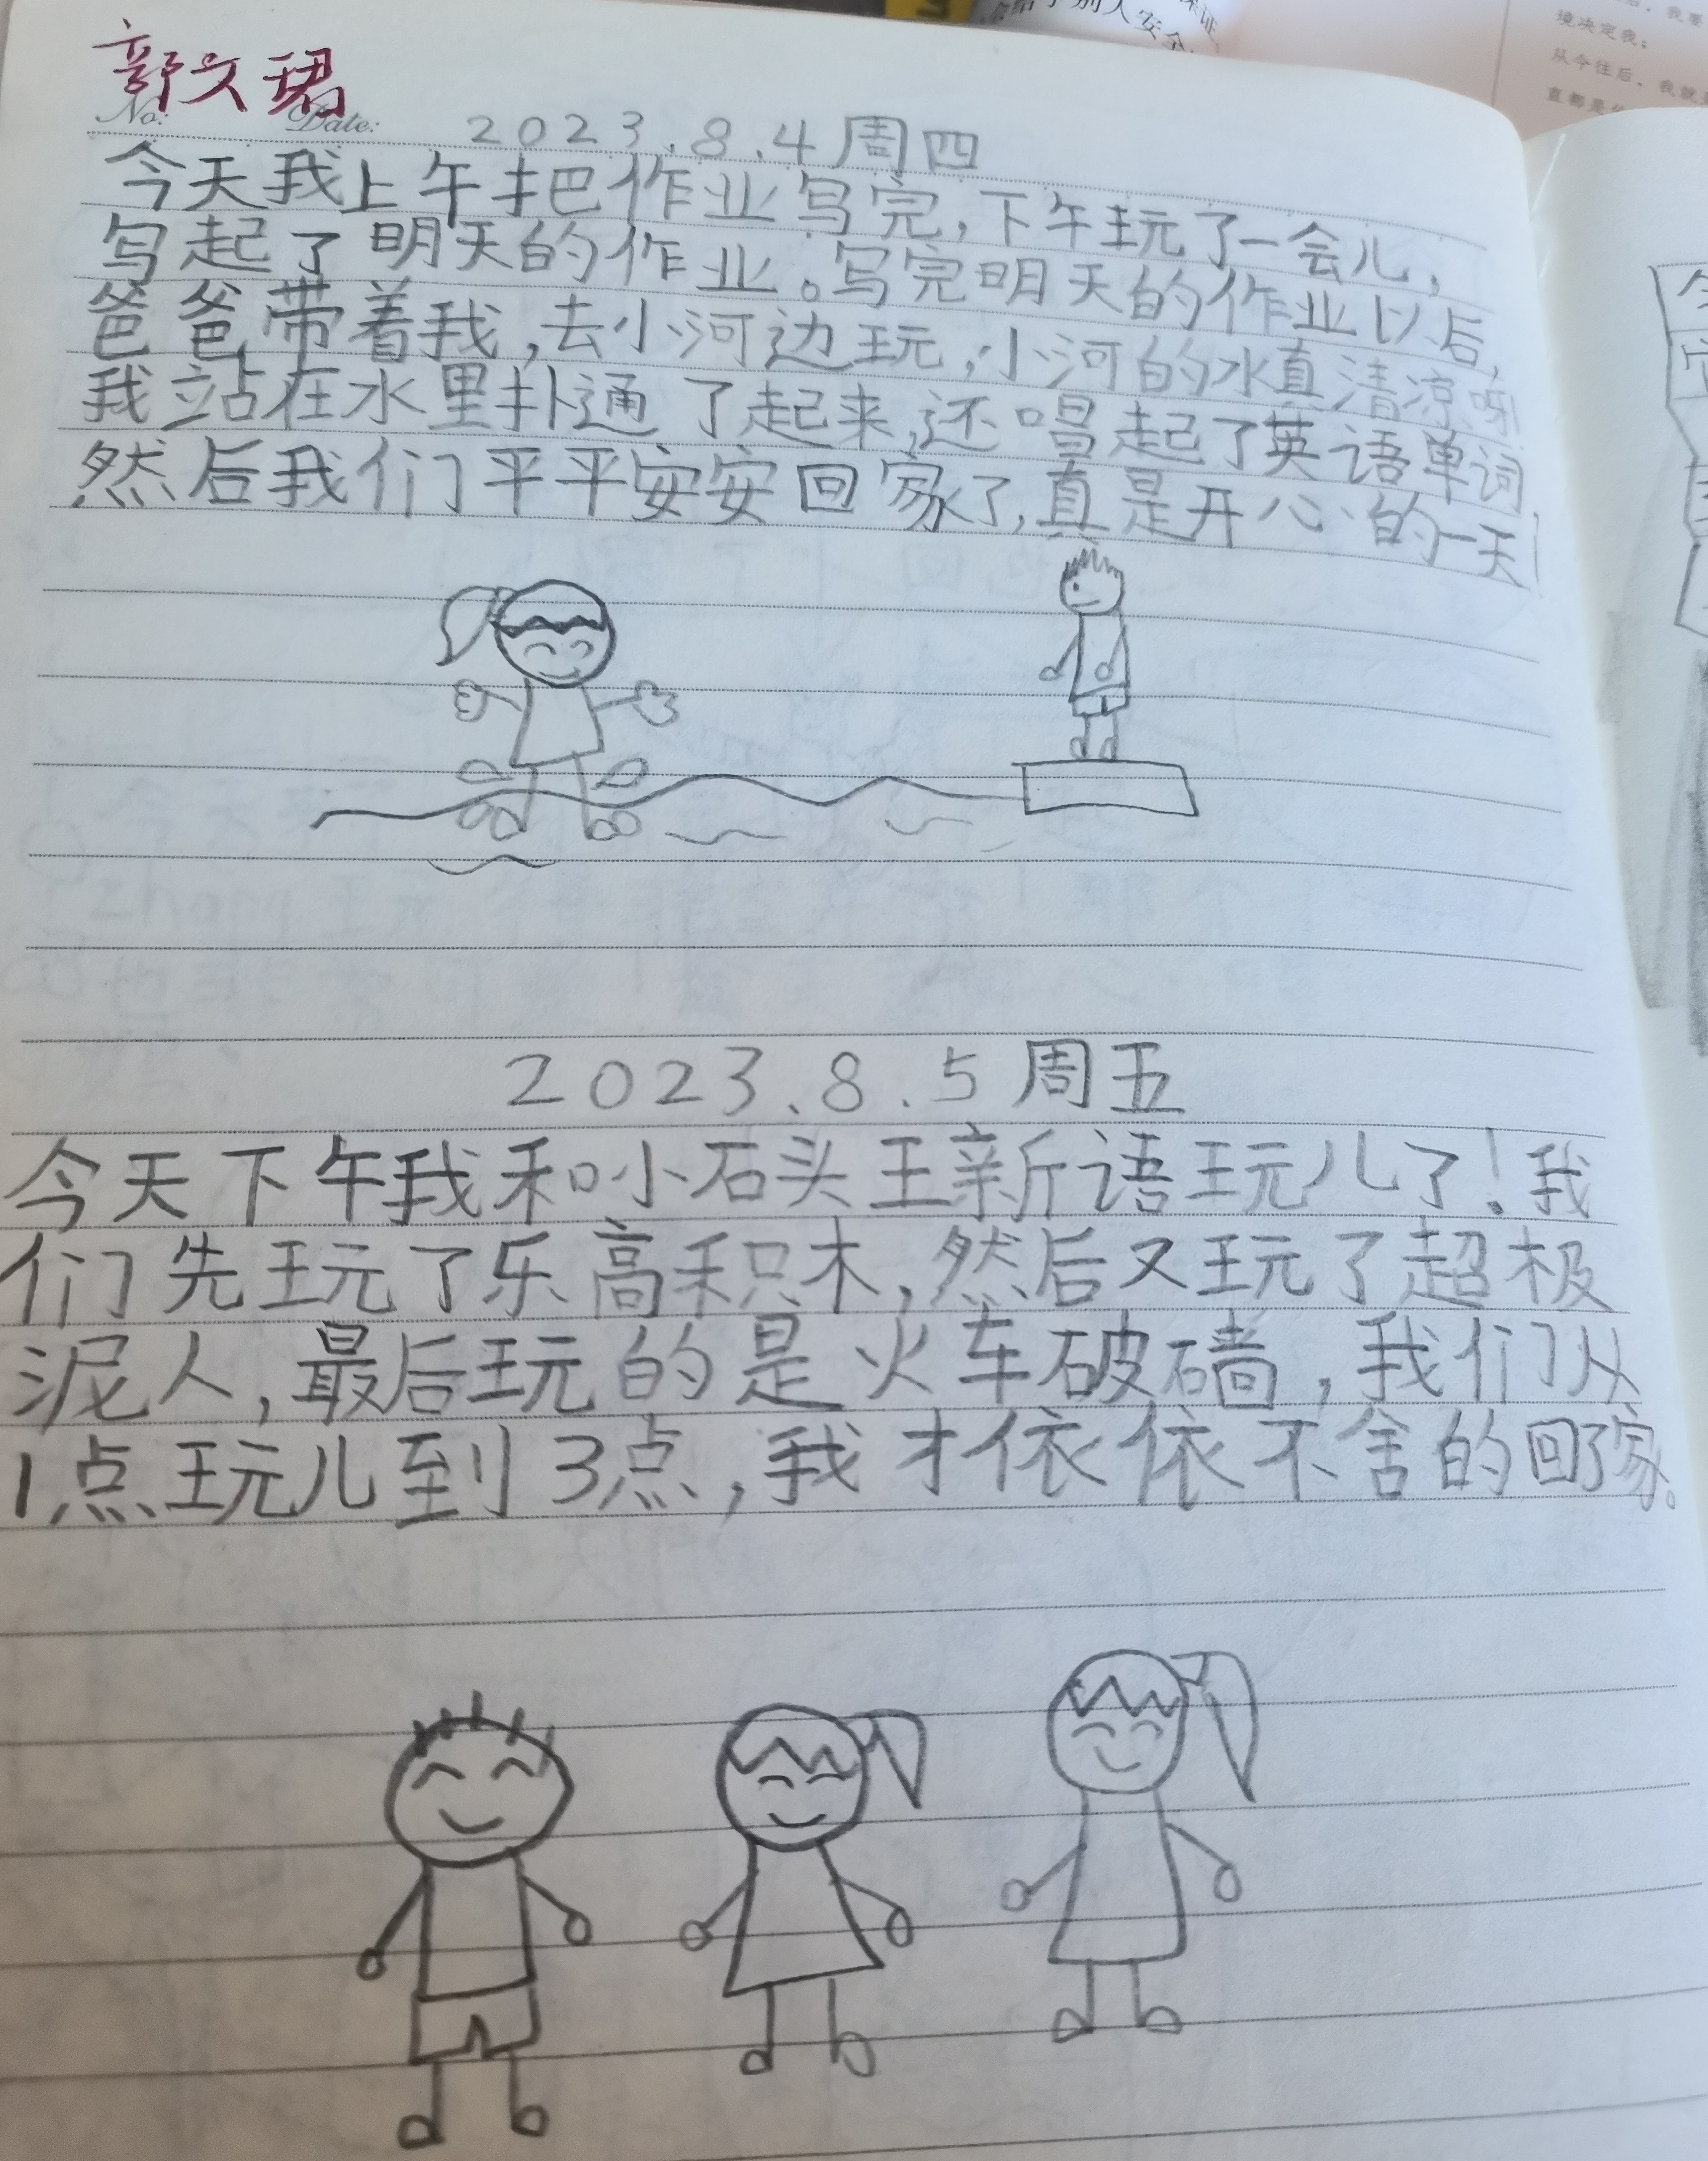 郭文珺
No: Date: 2023.8.4周四
今天我上午把作业写完,下午玩了一会儿,
写起了明天的作业。写完明天的作业以后,
爸爸带着我,去小河边玩,小河的水真清凉啊
我站在水里扑通了起来,还唱起了英语单词,
然后我们平平安安回家了,真是开心的一天!
2023.8.5周五
今天下午我和小石头王新语玩儿了!我
们先玩了乐高积木,然后又玩了超极
泥人,最后玩的是火车破墙,我们从
1点玩儿到3点,我才依依不舍的回了家。
境决定我;
从今往后,我就